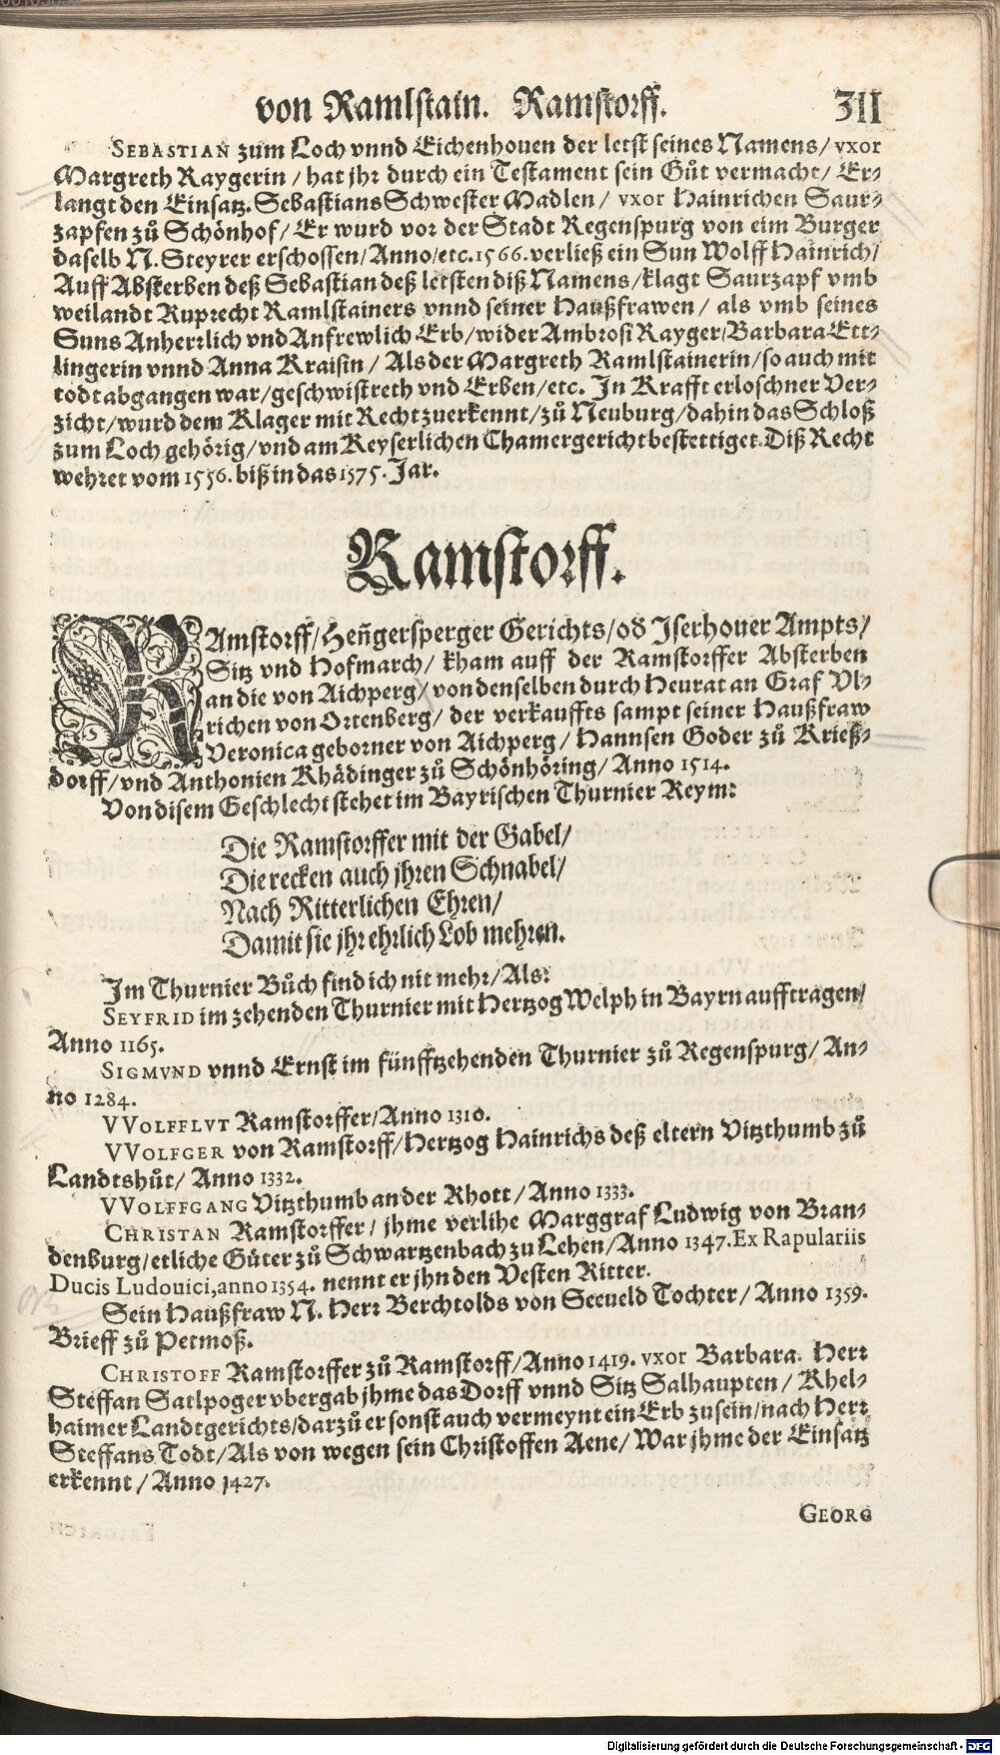 von Ramlstain. Ramstorff. 311
SEBASTIAN zum Loch vnnd Eichenhouen der letst seines Namens/ vxor
Margreth Raygerin / hat jhr durch ein Testament sein Gůt vermacht/ Er-
langt den Einsatz. Sebastians Schwester Madlen/ vxor Hainrichen Saur-
zapfen zů Schönhof/ Er wurd vor der Stadt Regenspurg von eim Burger
daselb N. Steyrer erschossen/Anno/etc.1566.verließ ein Sun Wolff Hainrich/
Auff Absterben deß Sebastian deß letsten diß Namens/klagt Saurzapf vmb
weilandt Ruprecht Ramlstainers vnnd seiner Haußfrawen / als vmb seines
Suns Anherrlich vnd Anfrewlich Erb/wider Ambrosi Rayger/Barbara Ett-
lingerin vnnd Anna Kraisin / Als der Margreth Ramlstainerin/so auch mit
todt abgangen war/geschwistreth vnd Erben/etc. In Krafft erloschner Ver-
zicht/wurd dem Klager mit Recht zuerkennt/zů Neuburg/dahin das Schloß
zum Loch gehörig/vnd am Keyserlichen Chamergericht bestettiget. Diß Recht
wehret vom 1556. biß in das 1575. Jar.
Ramstorff.
RAmstorff/Heñgersperger Gerichts/od Iserhouer Ampts/
Sitz vnd Hofmarch/ kham auff der Ramstorffer Absterben
an die von Aichperg/ von denselben durch Heurat an Graf Vl-
richen von Ortenberg/ der verkauffts sampt seiner Haußfraw
Veronica geborner von Aichperg / Hannsen Goder zů Krieß-
dorff/vnd Anthonien Khädinger zů Schönhöring/Anno 1514.
Von disem Geschlecht stehet im Bayrischen Thurnier Reym:
Die Ramstorffer mit der Gabel/
Die recken auch jhren Schnabel/
Nach Ritterlichen Ehren/
Damit sie jhr ehrlich Lob mehren.
Im Thurnier Bůch find ich nit mehr/Als:
SEYFRID im zehenden Thurnier mit Hertzog Welph in Bayrn aufftragen/
Anno 1165.
SIGMVND vnnd Ernst im fünfftzehenden Thurnier zů Regenspurg/ An-
no 1284.
VVOLFFLVT Ramstorffer/Anno 1310.
VVOLFGER von Ramstorff/Hertzog Hainrichs deß eltern Vitzthumb zů
Landtshůt/ Anno 1332.
VVOLFFGANG Vitzthumb an der Rhott / Anno 1333.
CHRISTAN Ramstorffer / jhme verlihe Marggraf Ludwig von Bran-
denburg/etliche Güter zů Schwartzenbach zu Lehen/Anno 1347.Ex Rapulariis
Ducis Ludouici,anno 1354. nennt er jhn den Vesten Ritter.
Sein Haußfraw N. Herr Berchtolds von Seeueld Tochter/ Anno 1359.
Brieff zů Petmoß.
CHRISTOFF Ramstorffer zů Ramstorff/Anno 1419. vxor Barbara. Herr
Steffan Satlpoger vbergab jhme das Dorff vnnd Sitz Salhaupten/ Khel-
haimer Landtgerichts/darzů er sonst auch vermeynt ein Erb zu sein/nach Herr
Steffans Todt/Als von wegen sein Christoffen Aene/ War jhme der Einsatz
erkennt / Anno 1427.
GEORG
Digitalisierung gefördert durch die Deutsche Forschungsgemeinschaft - DFG